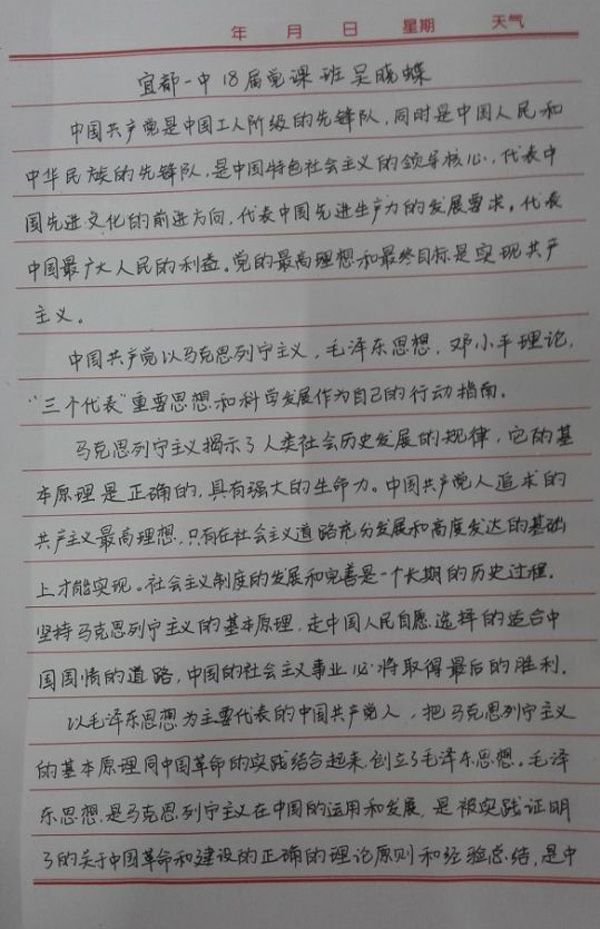 年 月 日 星期 天气
宜都一中18届党课班吴晓蝶
中国共产党是中国工人阶级的先锋队,同时是中国人民和
中华民族的先锋队,是中国特色社会主义的领导核心,代表中
国先进文化的前进方向,代表中国先进生产力的发展要求,代表
中国最广大人民的利益。党的最高理想和最终目标是实现共产
主义。
中国共产党以马克思列宁主义,毛泽东思想,邓小平理论,
“三个代表”重要思想和科学发展作为自己的行动指南。
马克思列宁主义揭示了人类社会历史发展的规律,它的基
本原理是正确的,具有强大的生命力。中国共产党人追求的
共产主义最高理想,只有在社会主义道路充分发展和高度发达的基础
上才能实现。社会主义制度的发展和完善是一个长期的历史过程.
坚持马克思列宁主义的基本原理,走中国人民自愿选择的适合中
国国情的道路,中国的社会主义事业必将取得最后的胜利.
以毛泽东思想为主要代表的中国共产党人,把马克思列宁主义
的基本原理同中国革命的实践结合起来,创立了毛泽东思想。毛泽
东思想是马克思列宁主义在中国的运用和发展,是被实践证明
了的关于中国革命和建设的正确的理论原则和经验总结,是中